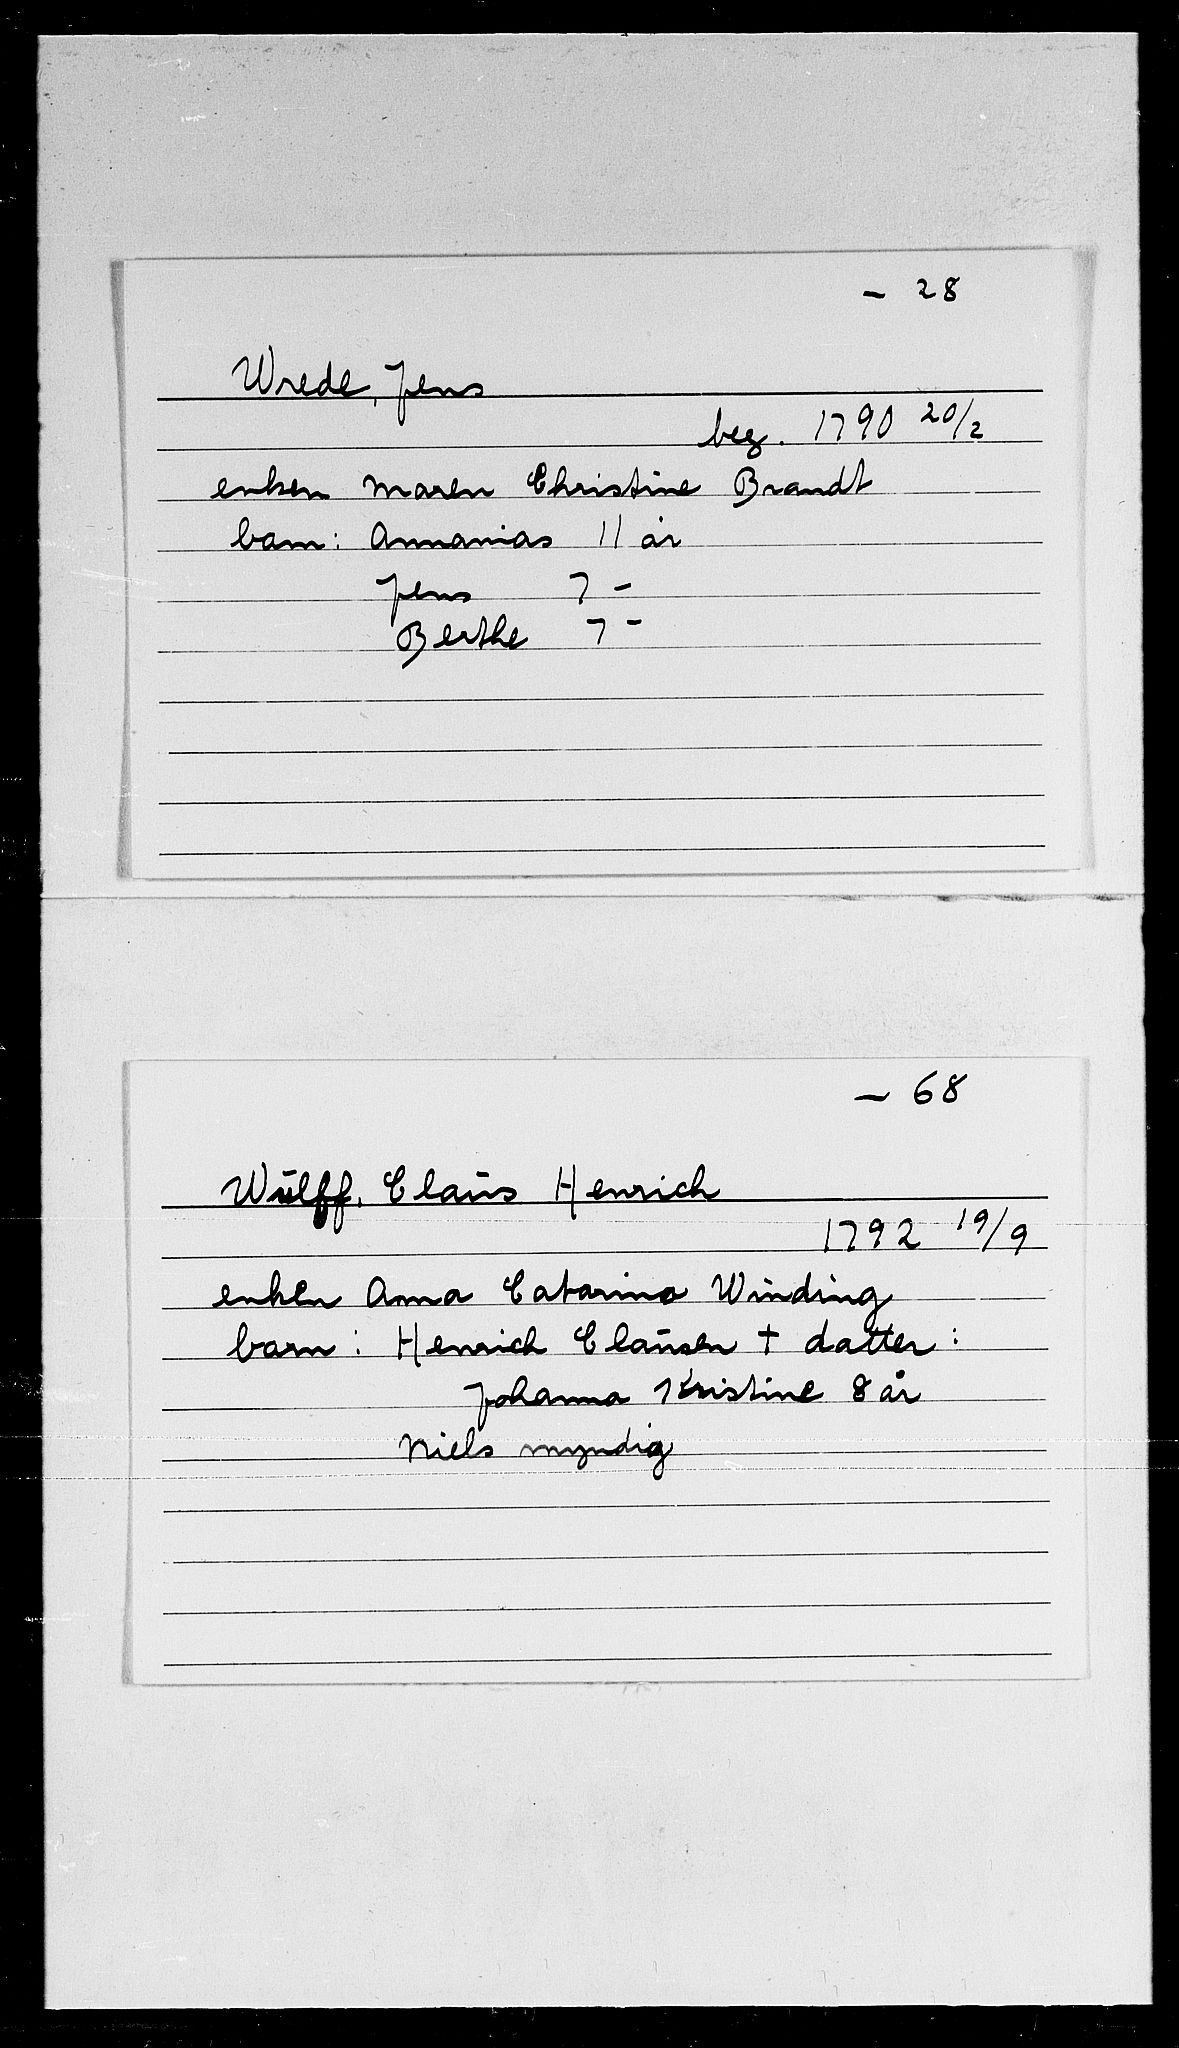 - 28
Wrede, Jens
beg. 1790 20/2
enken Maren Christine Brandt
barn: Annanias 11 år
Jens 7 -
Berthe 7 -
- 68
Wülff, Claüs Henrich
1792 19/9
enken Anna Catarina Winding
barn: Henrich Claüsen † datter:
Johanna Kristine 8 år
Niels myndig